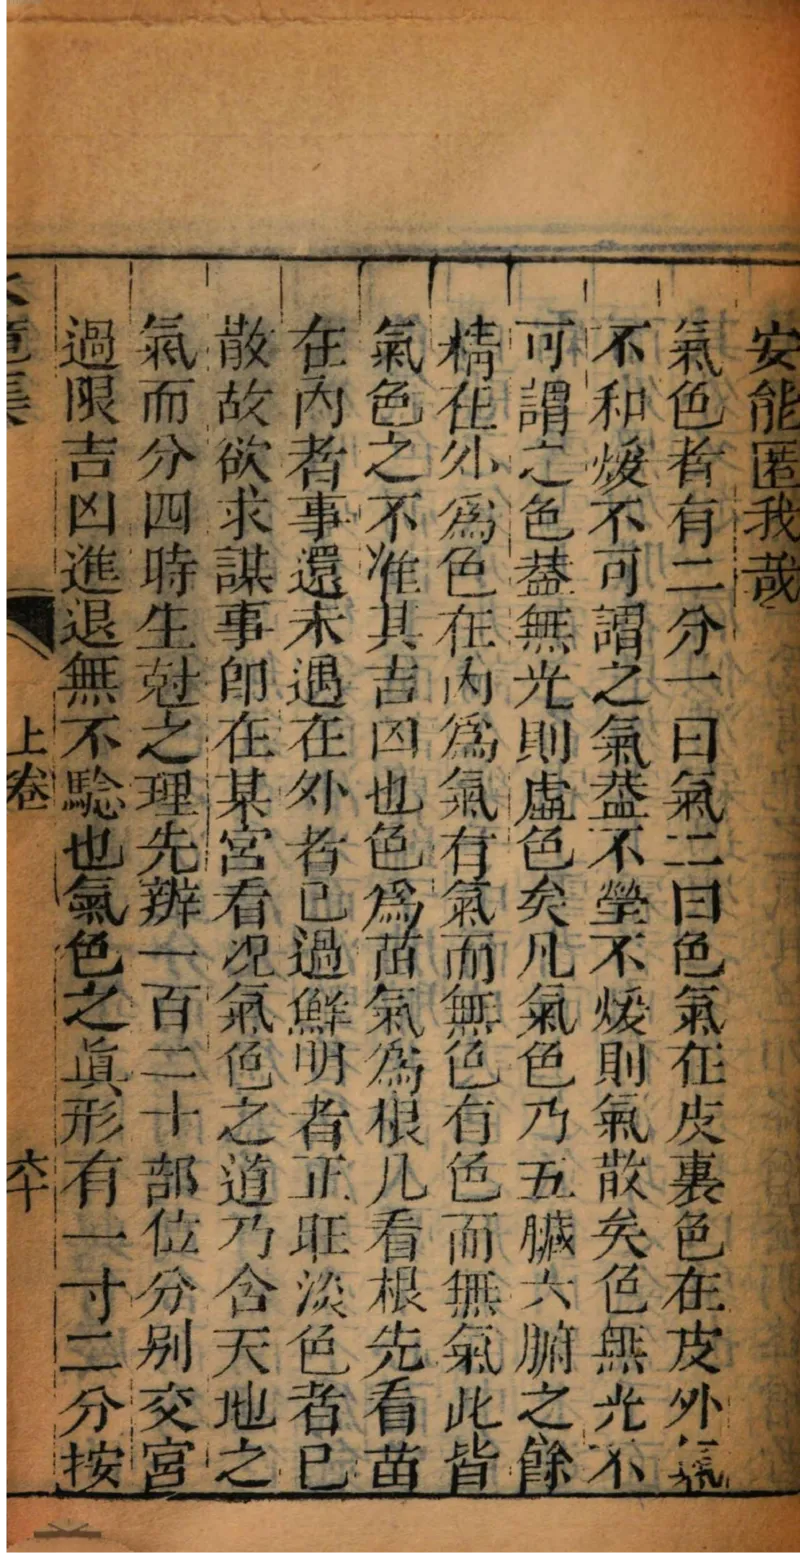 安能匿我哉
氣色者有二分一曰氣二曰色氣在皮裏色在皮外氣
不和煖不可謂之氣葢不瑩不煖則氣散矣色無光不
可謂之色葢無光則虛色矣凡氣色乃五臟六腑之餘
精在外爲色在内爲氣有氣而無色有色而無氣此皆
氣色之不准其吉凶也色爲苗氣爲根凡看根先看苗
在内者事還未過在外者已過鮮明者正旺淡色者已
散故欲求謀事卽在某宮看况氣色之道乃含天地之
氣而分四時生尅之理先辨一百二十部位分别交宮
過限吉凶進退無不騐也氣色之眞形有一寸二分按
上卷
六十